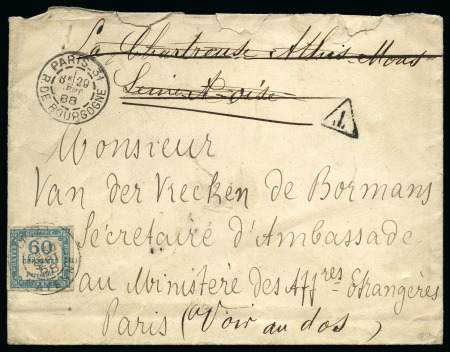 La Chartreuse Athis-Mons
Seine & Oise
PARIS_31
R. DE BOURGOGNE
88
T
Monsieur
Van der Vrecken de Bormans
Secrétaire d'Ambassade
60
CENTIMES
au Ministère des Affres Etrangères
Paris (Voir au dos)